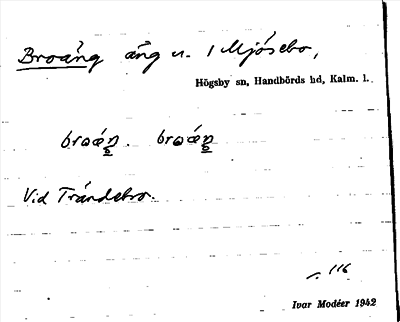 Broäng äng u. / Mjösebo,
Högsby sn, Handbörds hd, Kalm. l.
broäŋ. broäŋ
Vid Trändebro.
s. 116
Ivar Modéer 1942